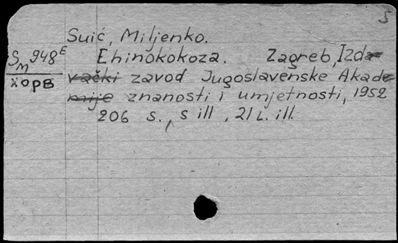 5
Suić, Miljenko.
SM 948E Ehinokokoza. Zagreb, Izda-
хорв vački zavod Jugoslavenske Akade-
mije znanosti i umjetnosti, 1952
206 s., s ill, 21 L. ill.